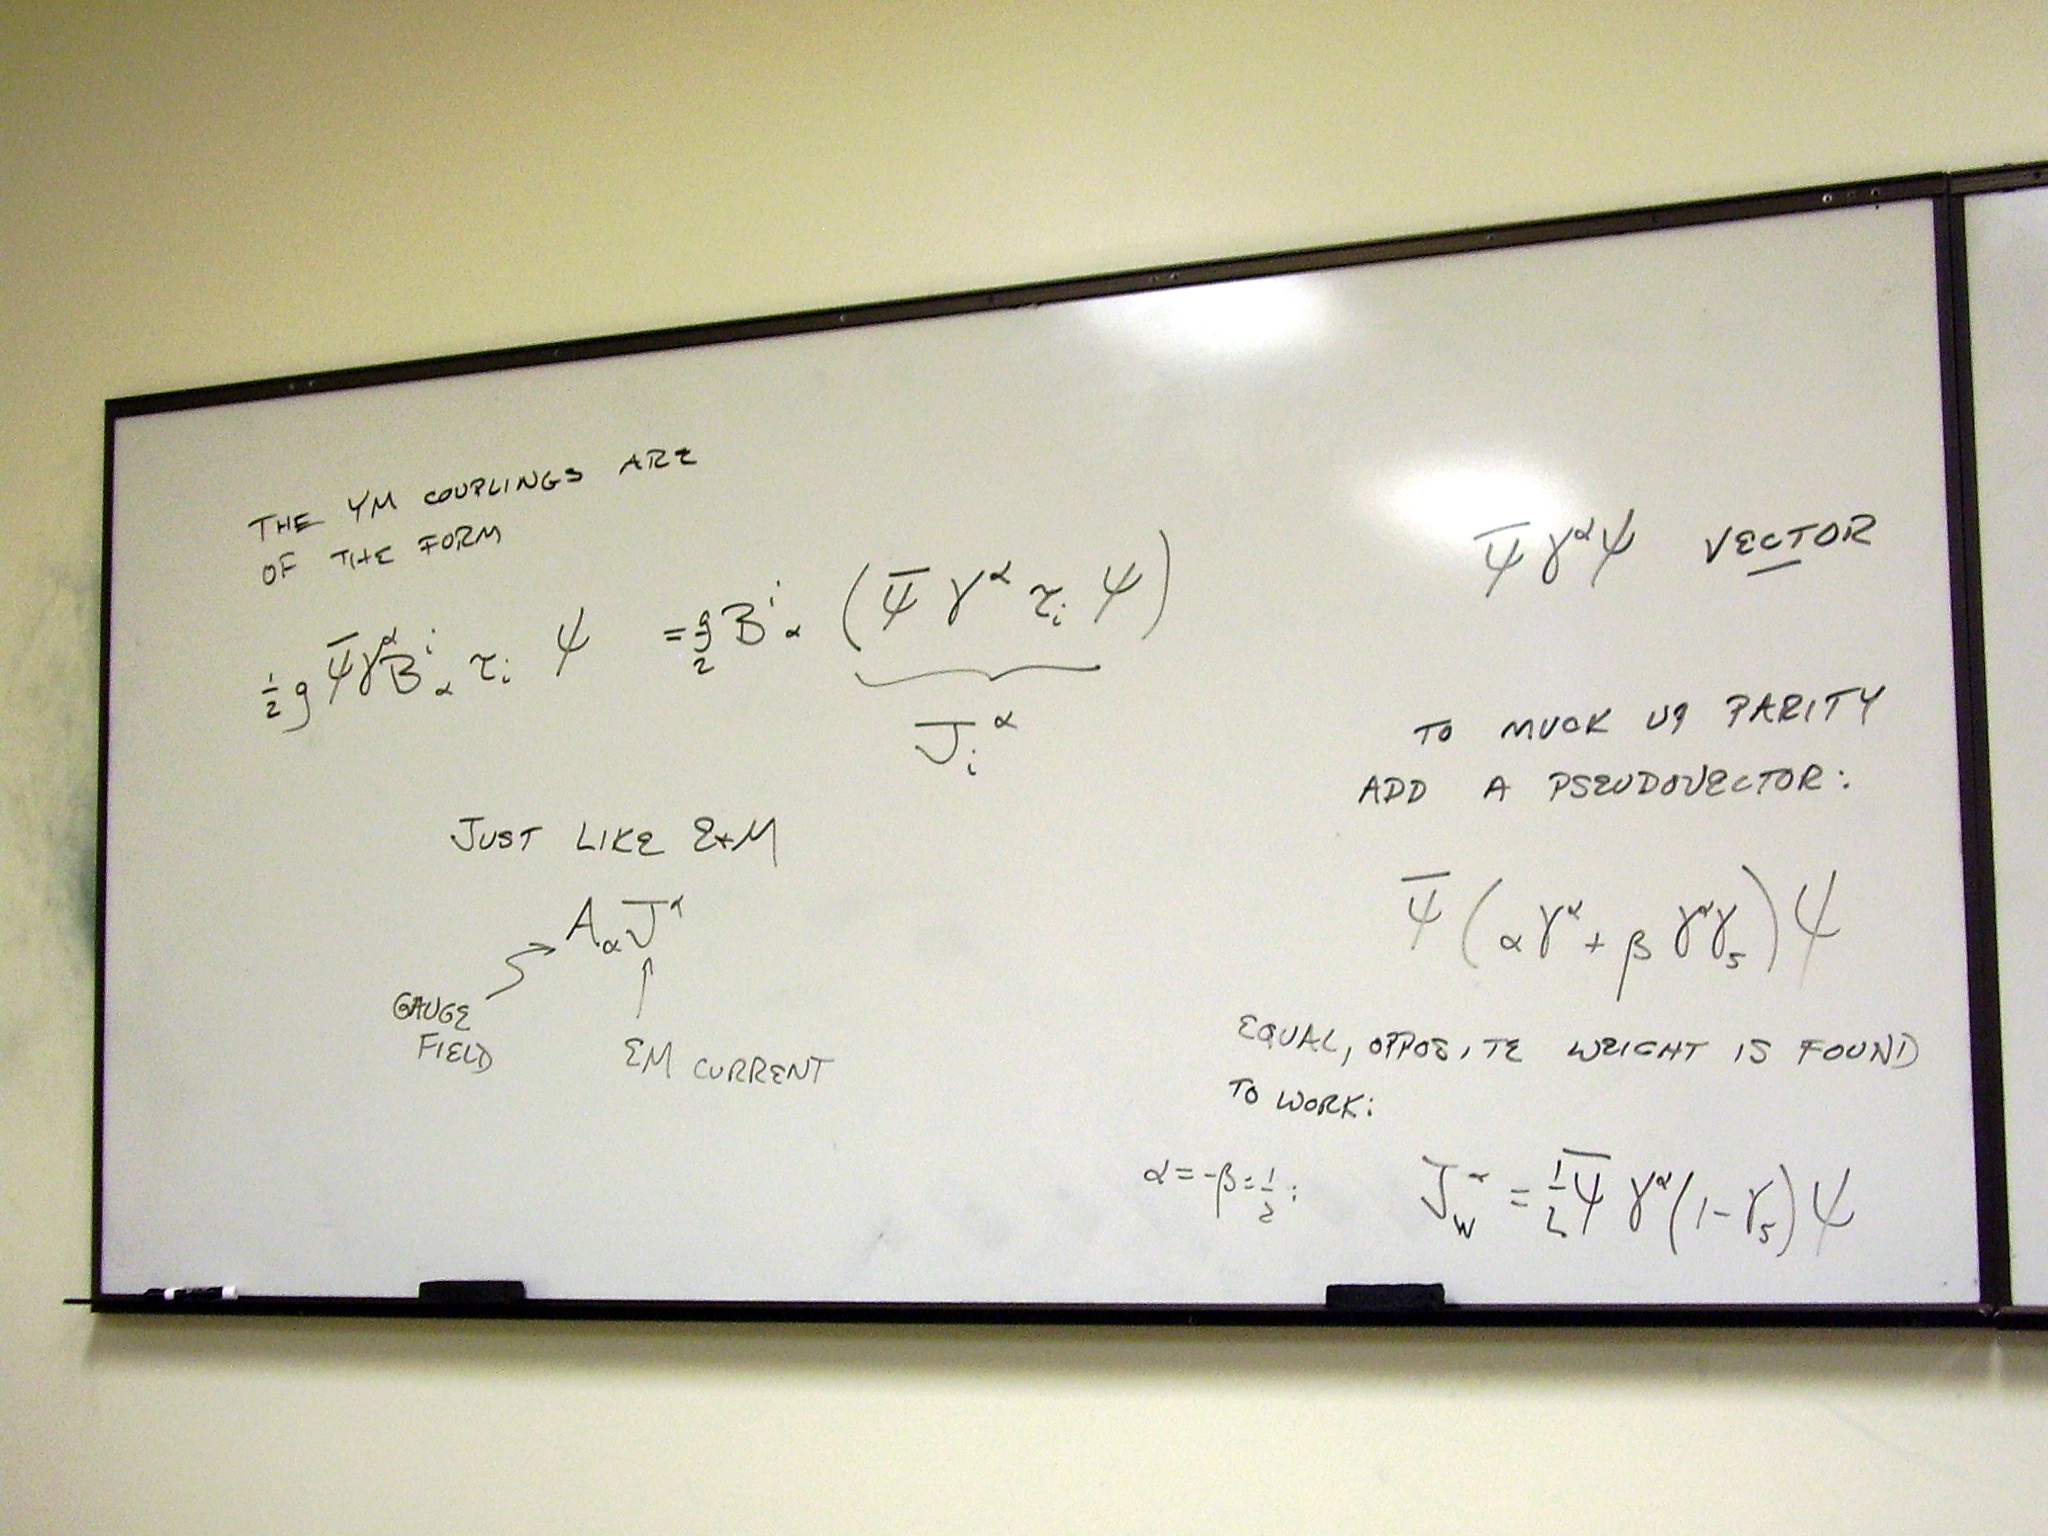 THE YM COUPLINGS ARE
OF THE FORM
½ g ψ̄ γ^α B^i_α τ_i ψ = g/2 B^i_α (ψ̄ γ^α τ_i ψ)
J_i^α
JUST LIKE E+M
A_α J^α
GAUGE
FIELD
EM CURRENT
ψ̄ γ^α ψ VECTOR
TO MUCK UP PARITY
ADD A PSEUDOVECTOR:
ψ̄ (α γ^α + β γ^α γ_5) ψ
EQUAL, OPPOSITE WEIGHT IS FOUND
TO WORK:
α = -β = ½ : J_W^α = ½ ψ̄ γ^α (1 - γ_5) ψ